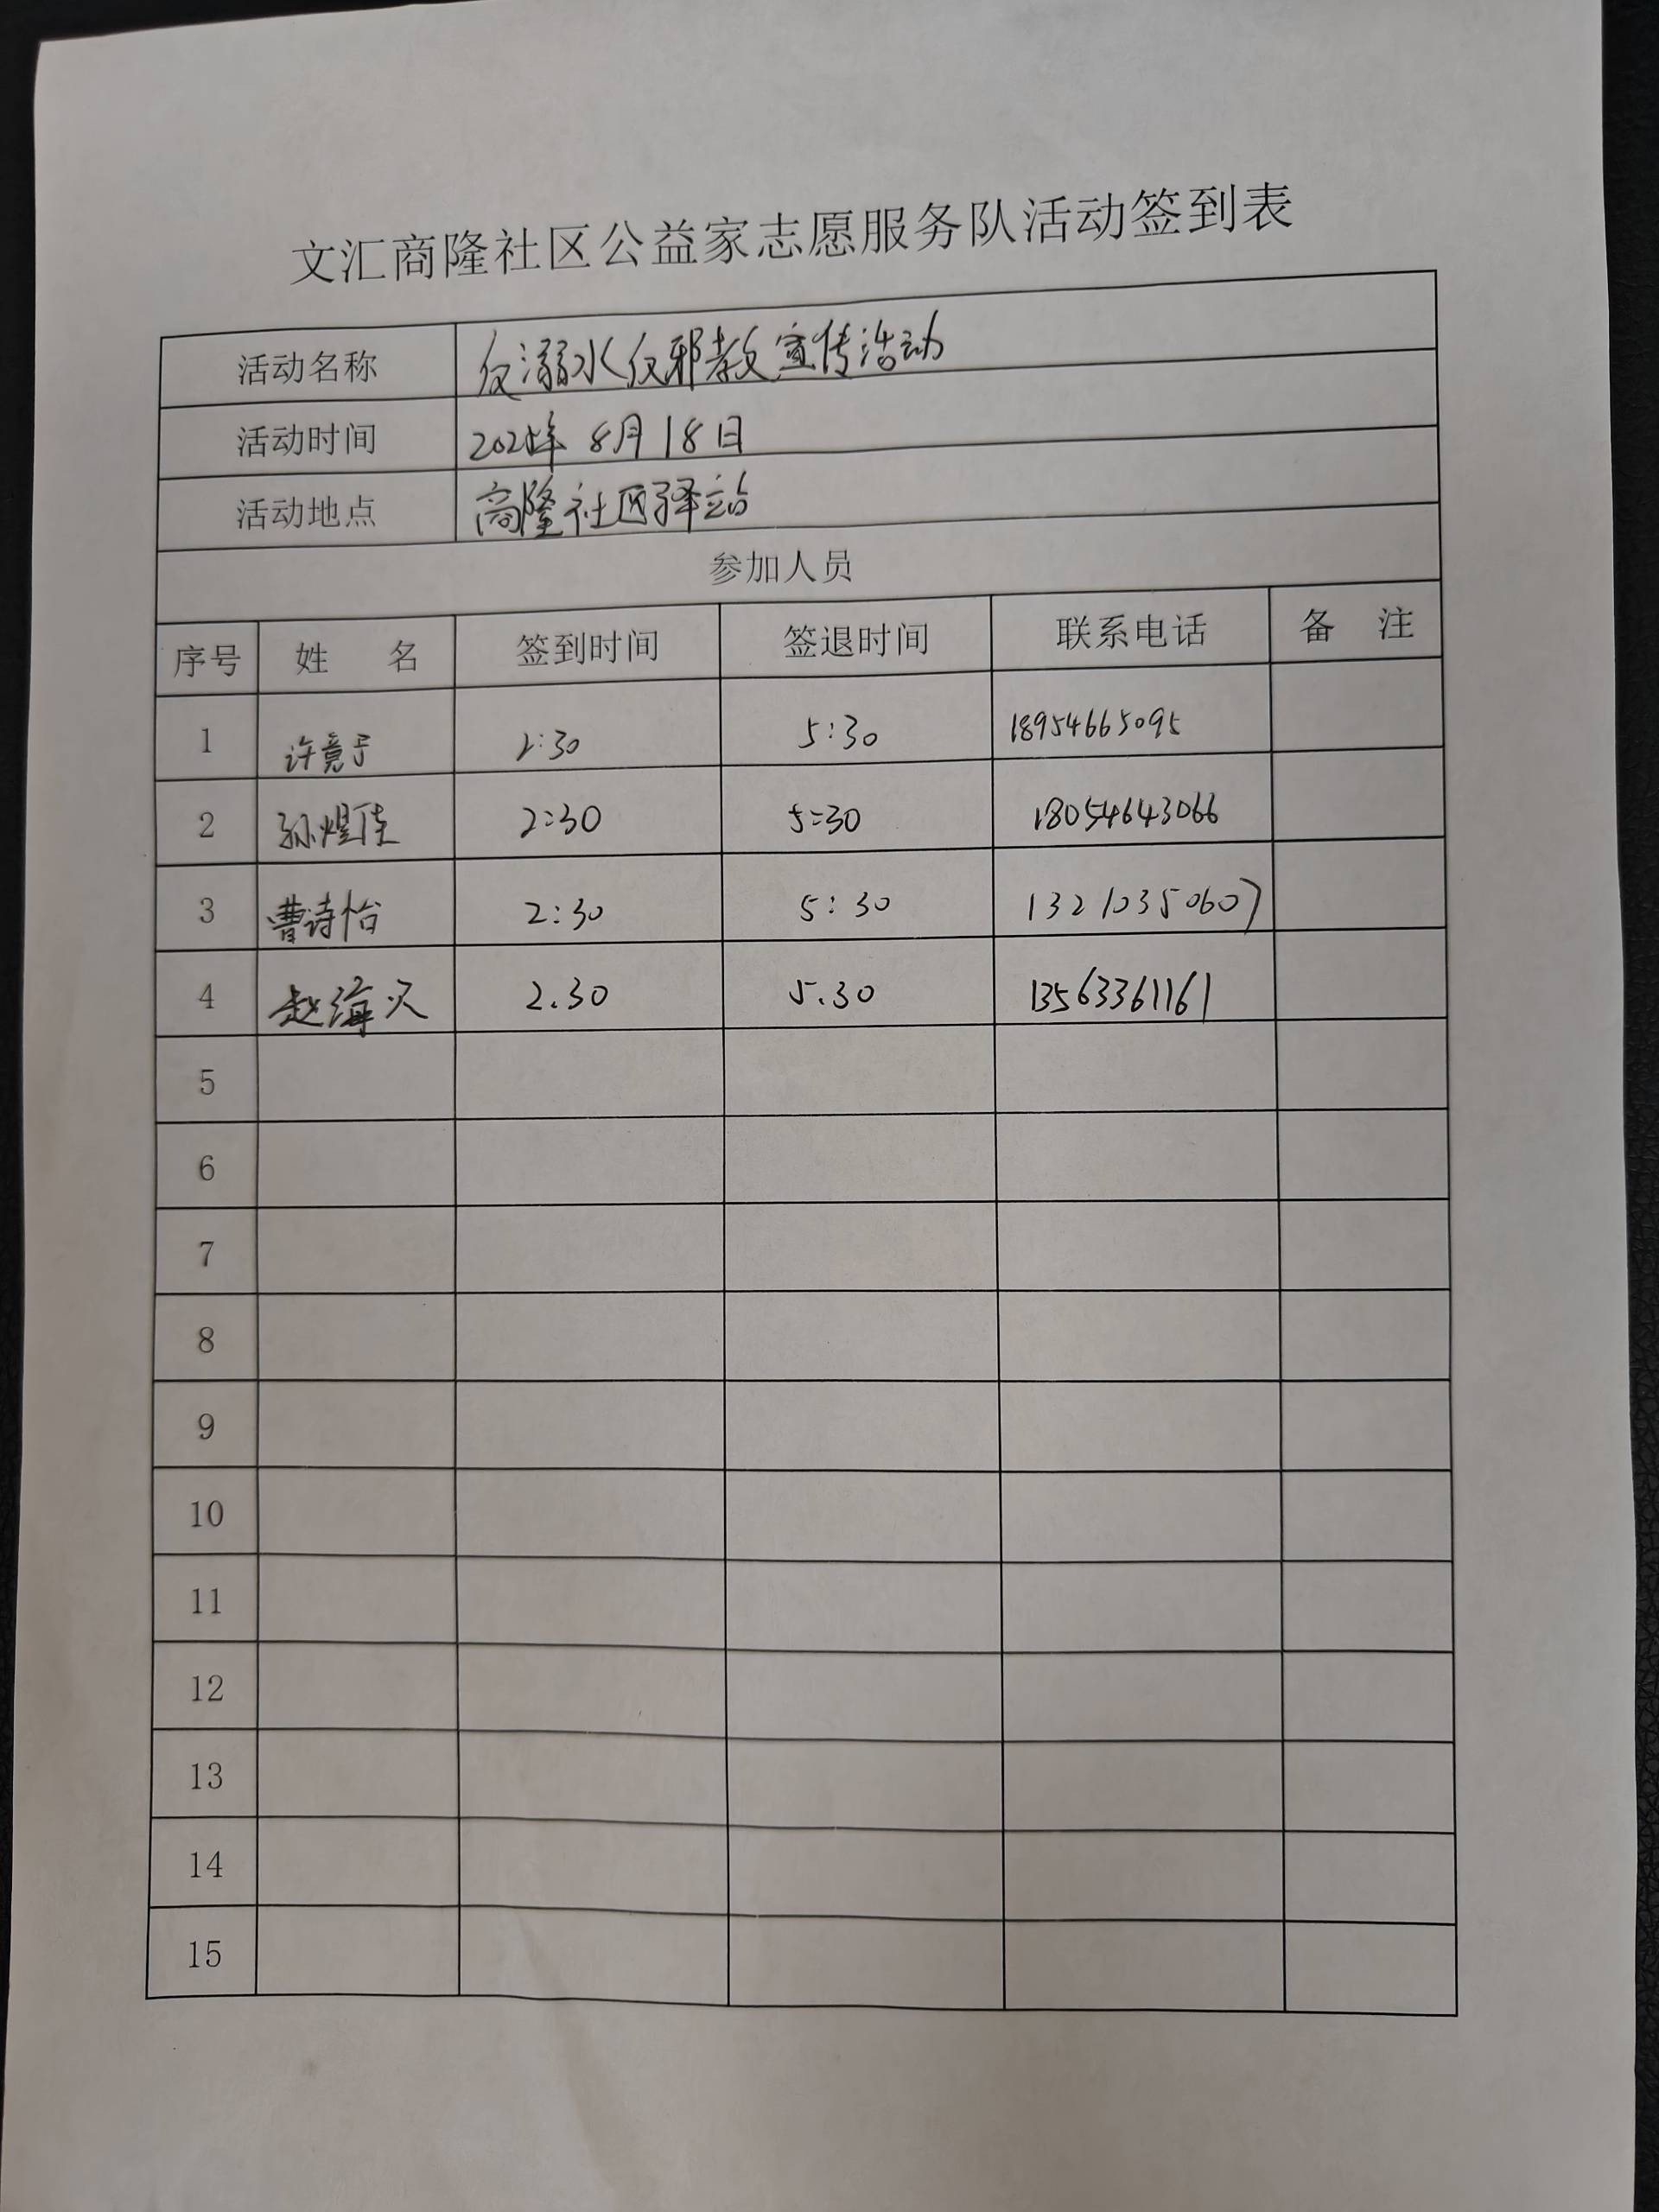 文汇商隆社区公益家志愿服务队活动签到表
活动名称 反溺水反邪教宣传活动
活动时间 2025年 8月18日
活动地点 商隆社区驿站
参加人员
序号 姓 名 签到时间 签退时间 联系电话 备 注
1 许竟于 2:30 5:30 18954665095
2 孙煜佳 2:30 5:30 18054643066
3 曹诗怡 2:30 5:30 13210350607
4 赵海 2.30 5.30 13563361161
5
6
7
8
9
10
11
12
13
14
15